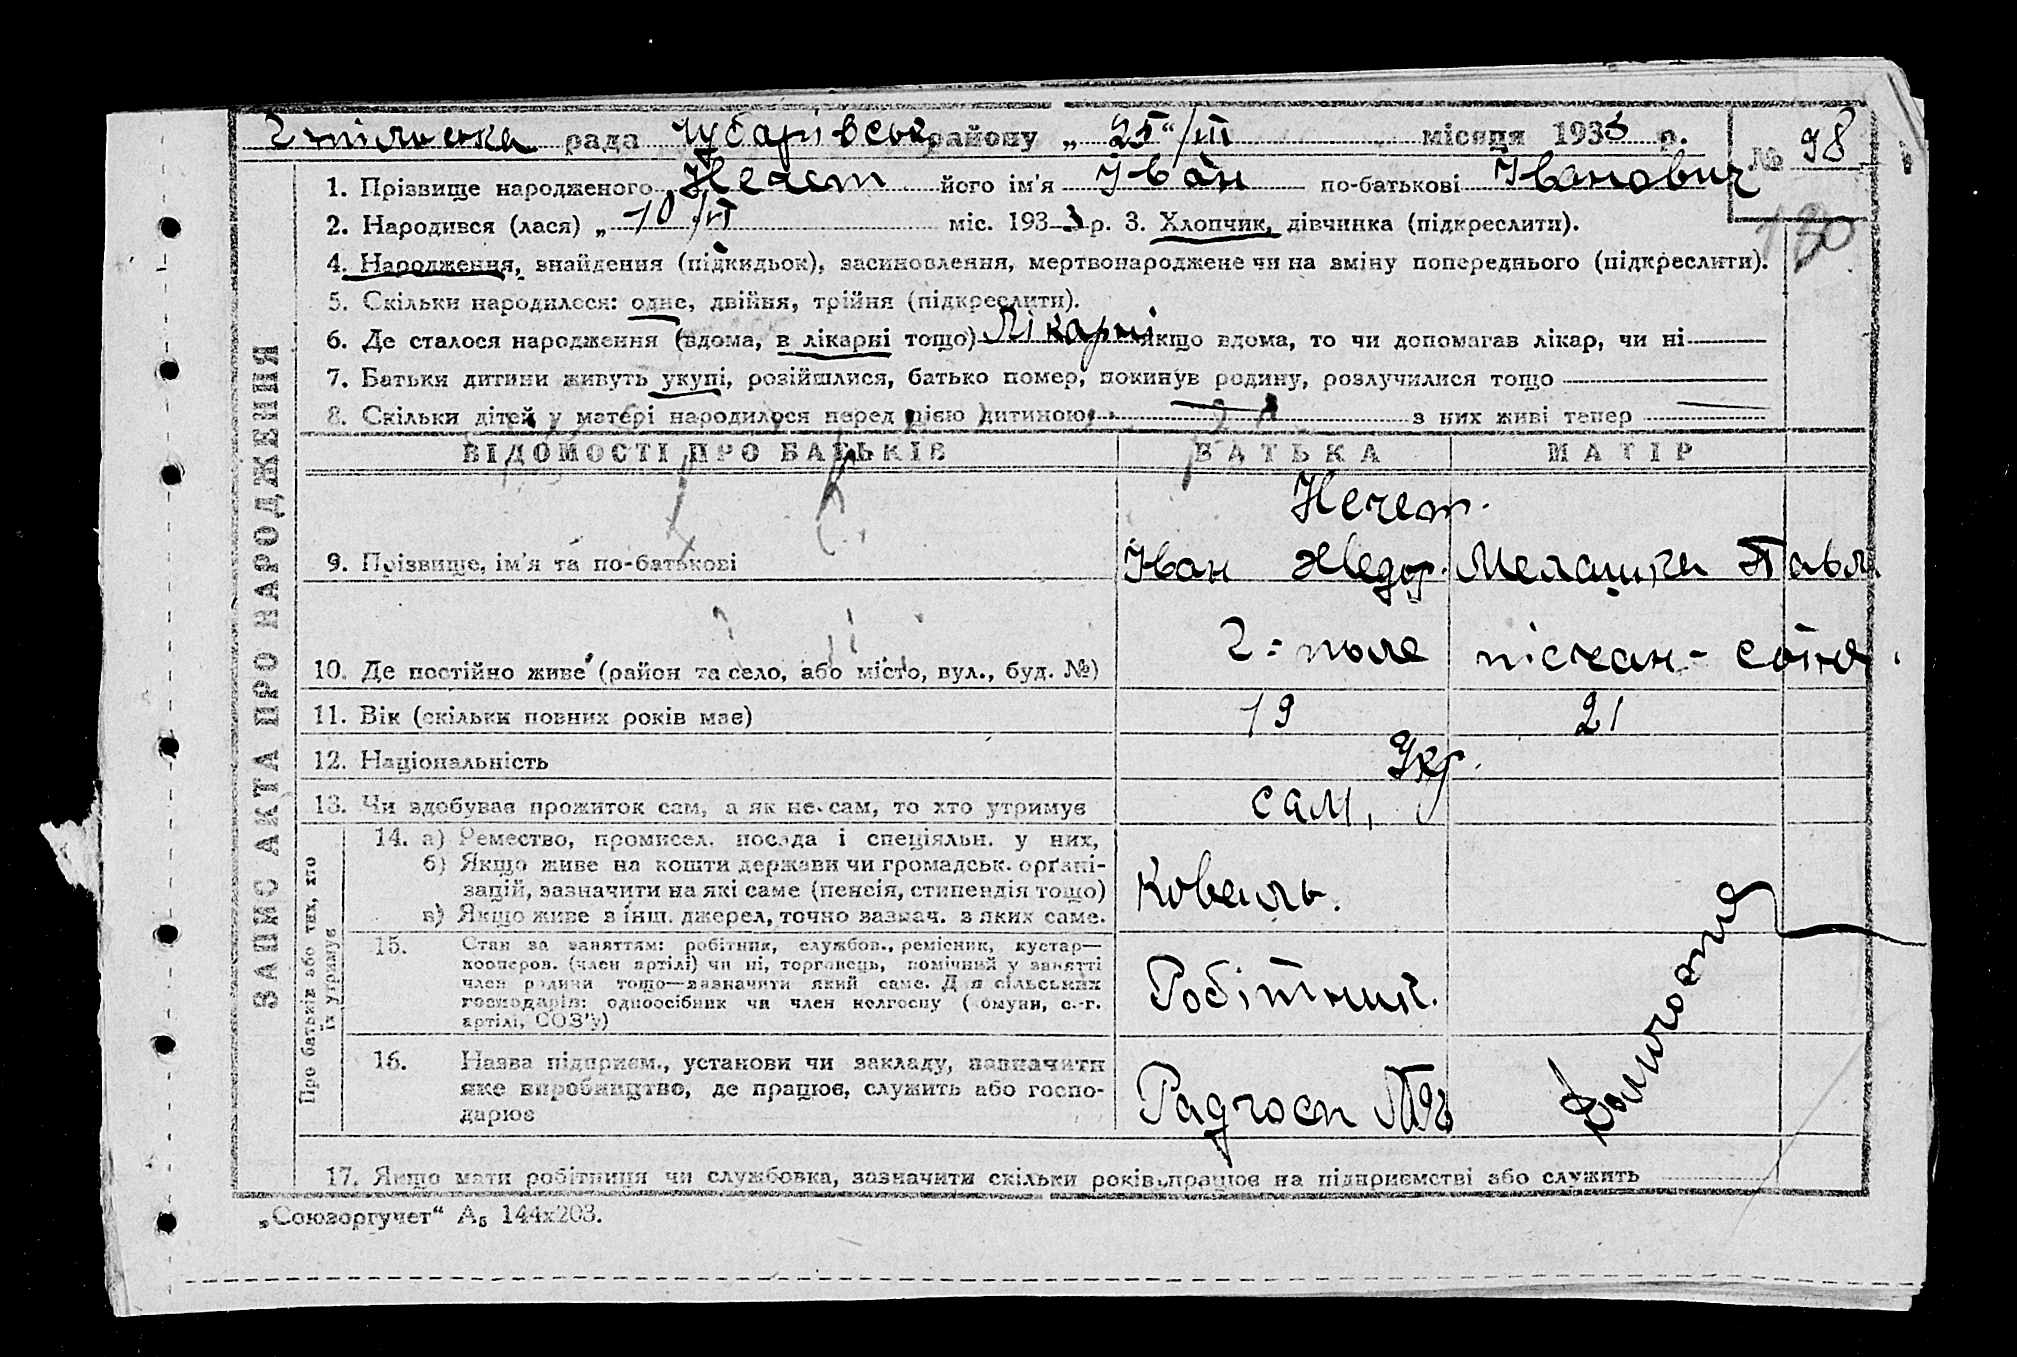 Г-пільська рада Чубарівськ району „25“/III місяця 1933 р.
№ 98
1. Прізвище народженого Нечет його ім'я Іван по-батькові Іванович
130
2. Народився (лася) „10/III міс. 1933 р. 3. Хлопчик, дівчинка (підкреслити).
4. Народження, знайдення (підкидьок), засиновлення, мертвонароджене чи на зміну попереднього (підкреслити).
5. Скільки народилося: одне, двійня, трійня (підкреслити).
6. Де сталося народження (вдома, в лікарні тощо) Лікарні якщо вдома, то чи допомагав лікар, чи ні
7. Батьки дитини живуть укупі, розійшлися, батько помер, покинув родину, розлучилися тощо
8. Скільки дітей у матері народилося перед цією дитиною з них живі тепер
ЗАПИС АКТА ПРО НАРОДЖЕННЯ
ВІДОМОСТІ ПРО БАТЬКІВ БАТЬКА МАТІР
Нечет.
9. Прізвище, ім'я та по-батькові Іван Хведор. Мелашка Павл.
10. Де постійно живе (район та село, або місто, вул., буд. №) Г-поле
11. Вік (скільки повних років має) 19 21
12. Національність Укр.
13. Чи здобував прожиток сам, а як не сам, то хто утримує сам,
Про батьків або тих, хто їх утримує
14. а) Ремество, промисел, посада і спеціяльн. у них,
б) Якщо живе на кошти держави чи громадськ. орґані-
зацій, зазначити на які саме (пенсія, стипендія тощо)
в) Якщо живе з інш. джерел, точно зазнач. з яких саме.
Коваль.
15. Стан за заняттям: робітник, службов., ремісник, кустар—
кооперов. (член артілі) чи ні, торговець, помічний у занятті
член родини тощо—зазначити який саме. Для сільських
господарів: одноосібник чи член колгоспу (комуни, с.-г.
артілі, СОЗ'у)
Робітник.
16. Назва підприєм., установи чи закладу, зазначити
яке виробництво, де працює, служить або госпо-
дарює
Радгосп №93
Домогоспод
17. Якщо мати робітниця чи службовка, зазначити скільки років працює на підприємстві або служить
„Союзоргучет“ А₅ 144x203.